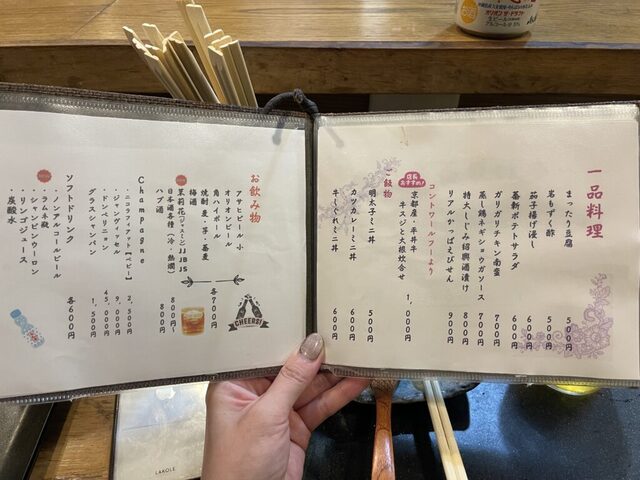 一品料理
まったり豆腐 500円
岩もずく酢 500円
茄子揚げ浸し 600円
薬新ポテトサラダ 600円
ガリガリチキン南蛮 700円
蒸し鶏ネギショウガソース 700円
特大しじみ紹興酒漬け 800円
リアルかっぱえびせん 900円
コントワールフーより
店長おすすめ!
京都産・平井牛
牛スジと大根炊合せ 1,000円
ご飯物
明太子ミニ丼 500円
カツカレーミニ丼 600円
牛しぐれミニ丼 600円
お飲み物
アサヒビール 小
オリオンビール
角ハイボール
焼酎 麦・芋・蕎麦
梅酒
各700円
茉莉花(ジャスミン)JJ BJS
日本酒各種(冷・熱燗) 800円〜
ハブ酒 800円
CHEERS!
Champagne
ニコラフィアット【ベビー】 2,500円
・ジャンヴィッセル 9,000円
・ドンペリニョン 45,000円
グラスシャンパン 1,500円
ソフトドリンク 各600円
・ノンアルコールビール
・ラムネ瓶
・シャンピンウーロン
・リンゴジュース
・炭酸水
オリオン ザ・ドラフト
生ビール
Asahi
LAKOLE